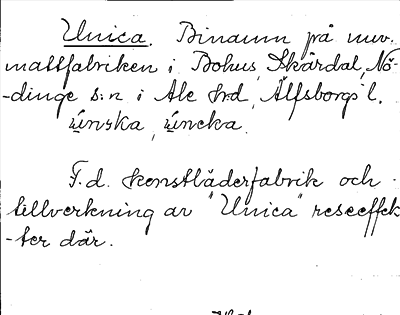 Unica. Binamn på nuv.
mattfabriken i Bohus, Skårdal, Nö-
-dinge s:n i Ale hrd, Älfsborgs l.
únska, úneka.
F.d. konstläderfabrik och
tillverkning av "Unica" reseeffek
-ter där.